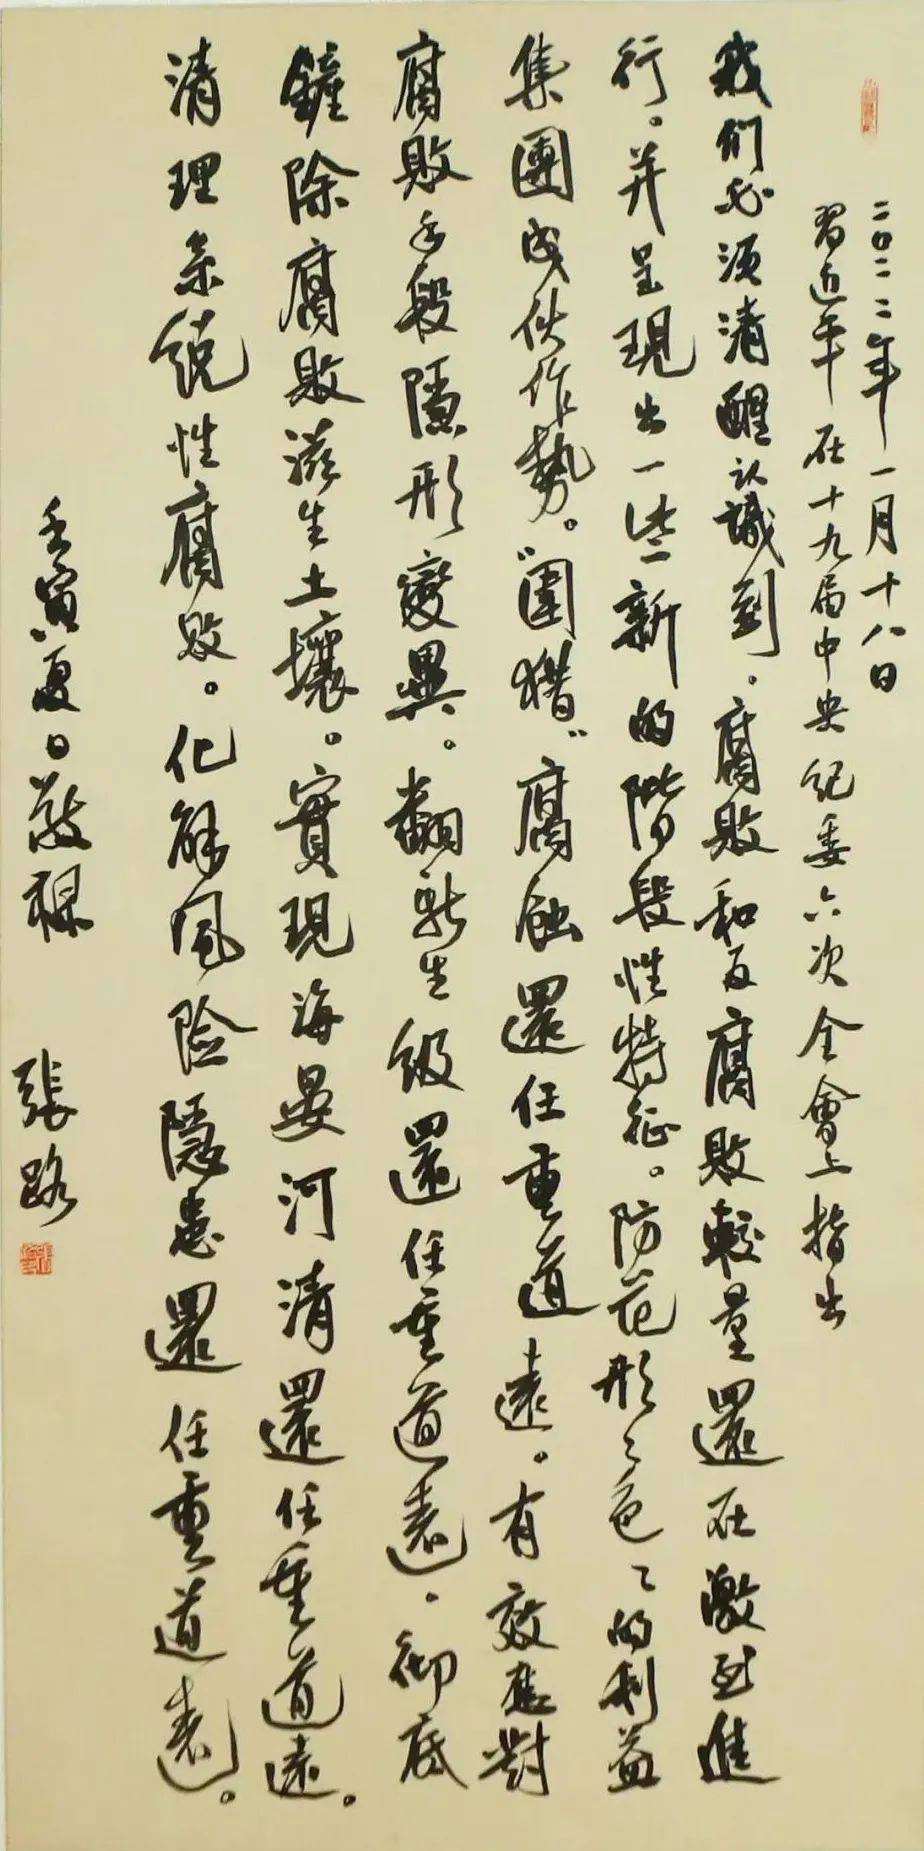 二〇二二年一月十八日
習近平在十九届中央纪委六次全會上指出
我们必须清醒认識到，腐敗和反腐敗較量還在激烈進
行。并呈現出一些新的階段性特征。防范形々色々的利益
集團成伙作勢。“围猎”腐蝕還任重道遠。有效應對
腐敗手段隱形變異。翻新升级還任重道遠。彻底
鏟除腐敗滋生土壤。實現海晏河清還任重道遠。
清理系统性腐敗。化解風险隱患還任重道遠。
壬寅夏日敬録
張路